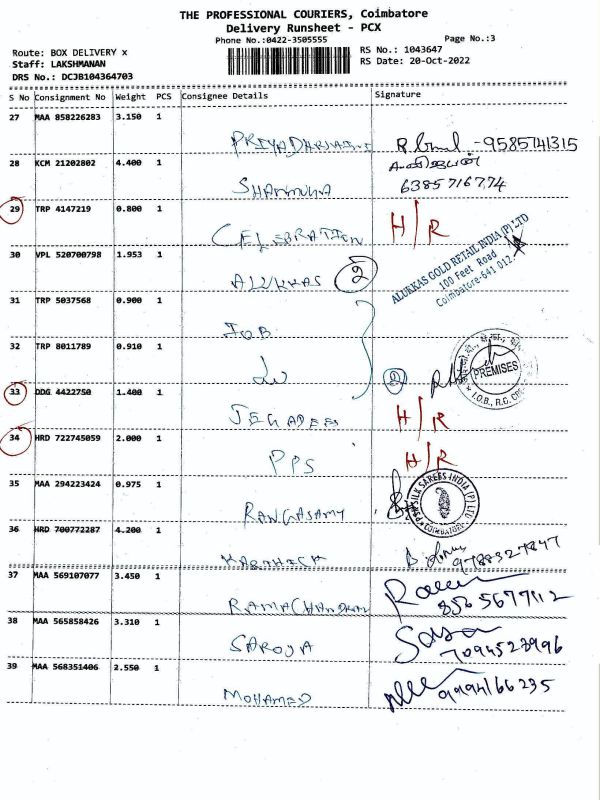 THE PROFESSIONAL COURIERS, Coimbatore
Delivery Runsheet - PCX
Phone No.:0422-3505555 Page No.:3
Route: BOX DELIVERY x RS No.: 1043647
Staff: LAKSHMANAN RS Date: 20-Oct-2022
DRS No.: DCJB104364703
S No Consignment No Weight PCS Consignee Details Signature
27 MAA 858226283 3.150 1
9585741315
28 KCM 21202802 4.400 1
SHANMUGA 6385716774
29 TRP 4147219 0.800 1
CELEBRATION H/R
30 VPL 520700798 1.953 1
ALUKKAS 2 ALUKKAS GOLD RETAIL INDIA (P) LTD
100 Feet Road
Coimbatore-641 012.
31 TRP 5037568 0.900 1
IOB
32 TRP 8011789 0.910 1
2 PREMISES
I.O.B., R.G.
33 DDG 4422750 1.400 1
JEGADEES H/R
34 HRD 722745059 2.000 1
PPS H/R
35 MAA 294223424 0.975 1
RANGASAMY SILK SAREES INDIA (P) LTD
COIMBATORE
36 HRD 700772287 4.200 1
KARTHICK 9788327847
37 MAA 569107077 3.450 1
RAMACHANDRAN
38 MAA 565858426 3.310 1
SAROJA 7094523996
39 MAA 568351406 2.550 1
MOHAMED 9994166235